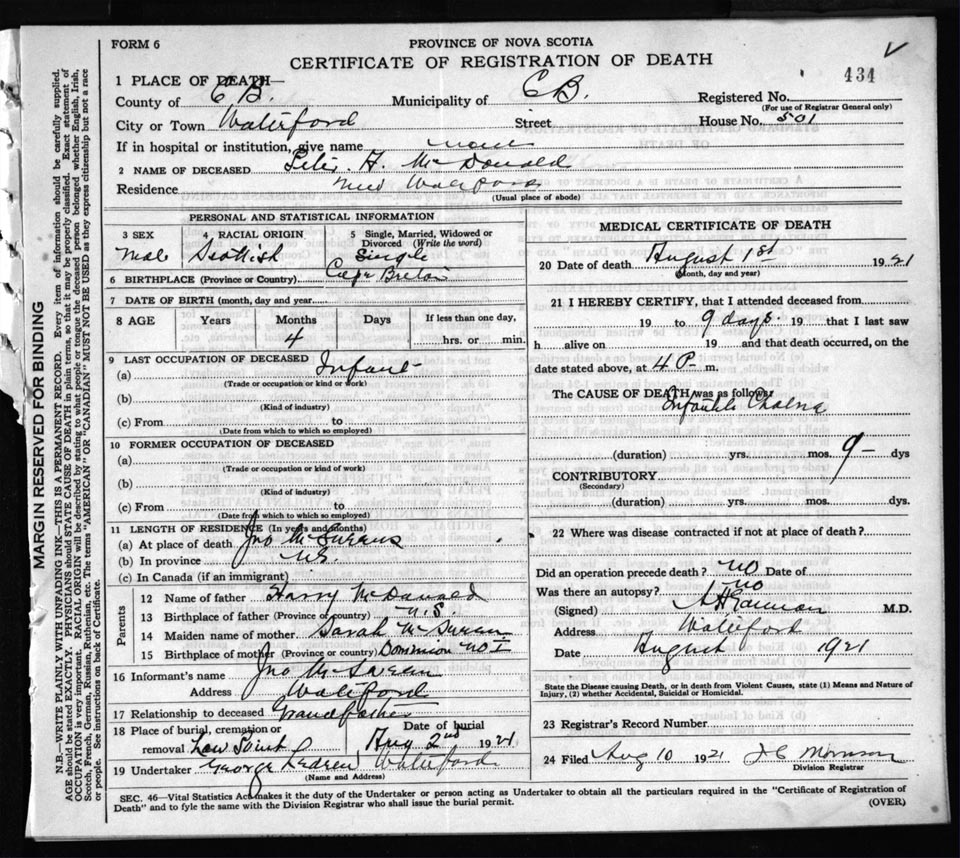 FORM 6
PROVINCE OF NOVA SCOTIA
CERTIFICATE OF REGISTRATION OF DEATH
434
1 PLACE OF DEATH—
County of C.B. Municipality of C B. Registered No.
(For use of Registrar General only)
City or Town Waterford Street House No. 501
If in hospital or institution, give name none
2 NAME OF DECEASED H. McDonald
Residence New Waterford
(Usual place of abode)
PERSONAL AND STATISTICAL INFORMATION
3 SEX 4 RACIAL ORIGIN 5 Single, Married, Widowed or Divorced (Write the word)
Male Scottish Single
6 BIRTHPLACE (Province or Country) Cape Breton
7 DATE OF BIRTH (month, day and year)
8 AGE Years Months Days If less than one day,
4 hrs. or min.
9 LAST OCCUPATION OF DECEASED
(a) Infant
(Trade or occupation or kind of work)
(b)
(Kind of industry)
(c) From to
(Date from which to which so employed)
10 FORMER OCCUPATION OF DECEASED
(a)
(Trade or occupation or kind of work)
(b)
(Kind of industry)
(c) From to
(Date from which to which so employed)
11 LENGTH OF RESIDENCE (In years and months)
(a) At place of death Jno
(b) In province N.S.
(c) In Canada (if an immigrant)
Parents
12 Name of father Harry McDonald
13 Birthplace of father (Province or country) N.S.
14 Maiden name of mother Sarah
15 Birthplace of mother (Province or country) Dominion No I
16 Informant's name Jno
Address Waterford
17 Relationship to deceased Grandfather
18 Place of burial, cremation or removal Low Point Date of burial Aug 2nd 1921
19 Undertaker George Waterford
(Name and Address)
MEDICAL CERTIFICATE OF DEATH
20 Date of death August 1st 1921
(Month, day and year)
21 I HEREBY CERTIFY, that I attended deceased from
19 to 9 days. 19 that I last saw
h alive on 19 and that death occurred, on the
date stated above, at 4 P m.
The CAUSE OF DEATH was as follows:
Infantile
(duration) yrs. mos. 9 – dys
CONTRIBUTORY
(Secondary)
(duration) yrs. mos. dys.
22 Where was disease contracted if not at place of death?
Did an operation precede death? no Date of
Was there an autopsy? no
(Signed) M.D.
Address Waterford
Date August 1921
State the Disease causing Death, or in death from Violent Causes, state (1) Means and Nature of
Injury, (2) whether Accidental, Suicidal or Homicidal.
23 Registrar's Record Number
24 Filed Aug 10 1921 J C Morrison
Division Registrar
SEC. 46—Vital Statistics Act makes it the duty of the Undertaker or person acting as Undertaker to obtain all the particulars required in the "Certificate of Registration of
Death" and to fyle the same with the Division Registrar who shall issue the burial permit.
(OVER)
MARGIN RESERVED FOR BINDING
N.B.—WRITE PLAINLY WITH UNFADING INK—THIS IS A PERMANENT RECORD. Every item of information should be carefully supplied.
AGE should be stated EXACTLY. PHYSICIANS should STATE CAUSE OF DEATH in plain terms, so that it may be properly classified. Exact statement of
OCCUPATION is very important. RACIAL ORIGIN will be described by stating to what people or tongue the deceased person belonged whether English, Irish,
Scotch, French, German, Russian, Ruthenian, etc. The terms "AMERICAN" OR "CANADIAN" MUST NOT BE USED as they express citizenship but not a race
or people. See instructions on back of Certificate.